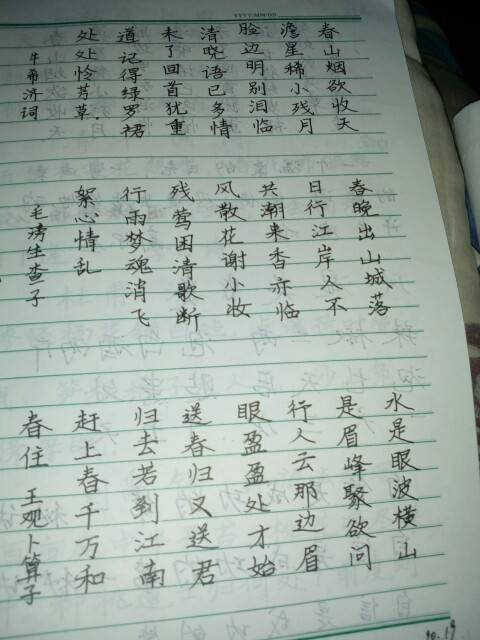 春山烟欲收天
澹星稀小残月
脸边明别泪临
清晓语已多情
未了回首犹重
道记得绿罗裙
处处怜芳草.
牛希济词
春晚出山城落
日行江岸人不
共潮来香亦临
风散花谢小妆
残莺困清歌断
行雨梦魂消飞
絮心情乱
毛滂生查子
水是眼波横山
是眉峰聚欲问
行人云那边眉
眼盈盈处才始
送春归又送君
归去若到江南
赶上春千万和
春住 王观卜算子